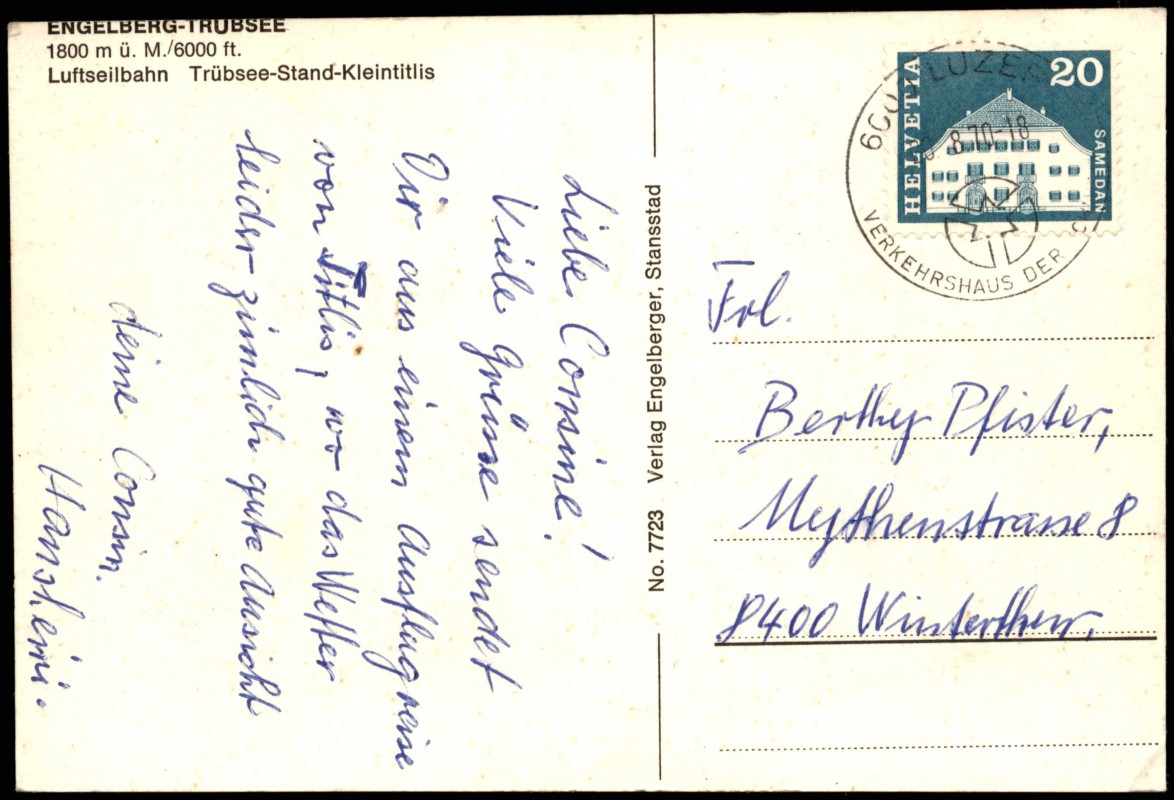 ENGELBERG-TRÜBSEE
1800 m ü. M./6000 ft.
Luftseilbahn Trübsee-Stand-Kleintitlis
Liebe Cousine!
Viele Grüsse sendet
Dir aus einem Ausflugreise
vom Titlis, wo das Wetter
leider zimlich gute Aussicht
deine Cousin.
Hansheini.
No. 7723 Verlag Engelberger, Stansstad
HELVETIA
20
SAMEDAN
6000 LUZERN
8.70-18
VERKEHRSHAUS DER
Frl.
Berthy Pfister,
Mythenstrasse 8
8400 Winterthur.